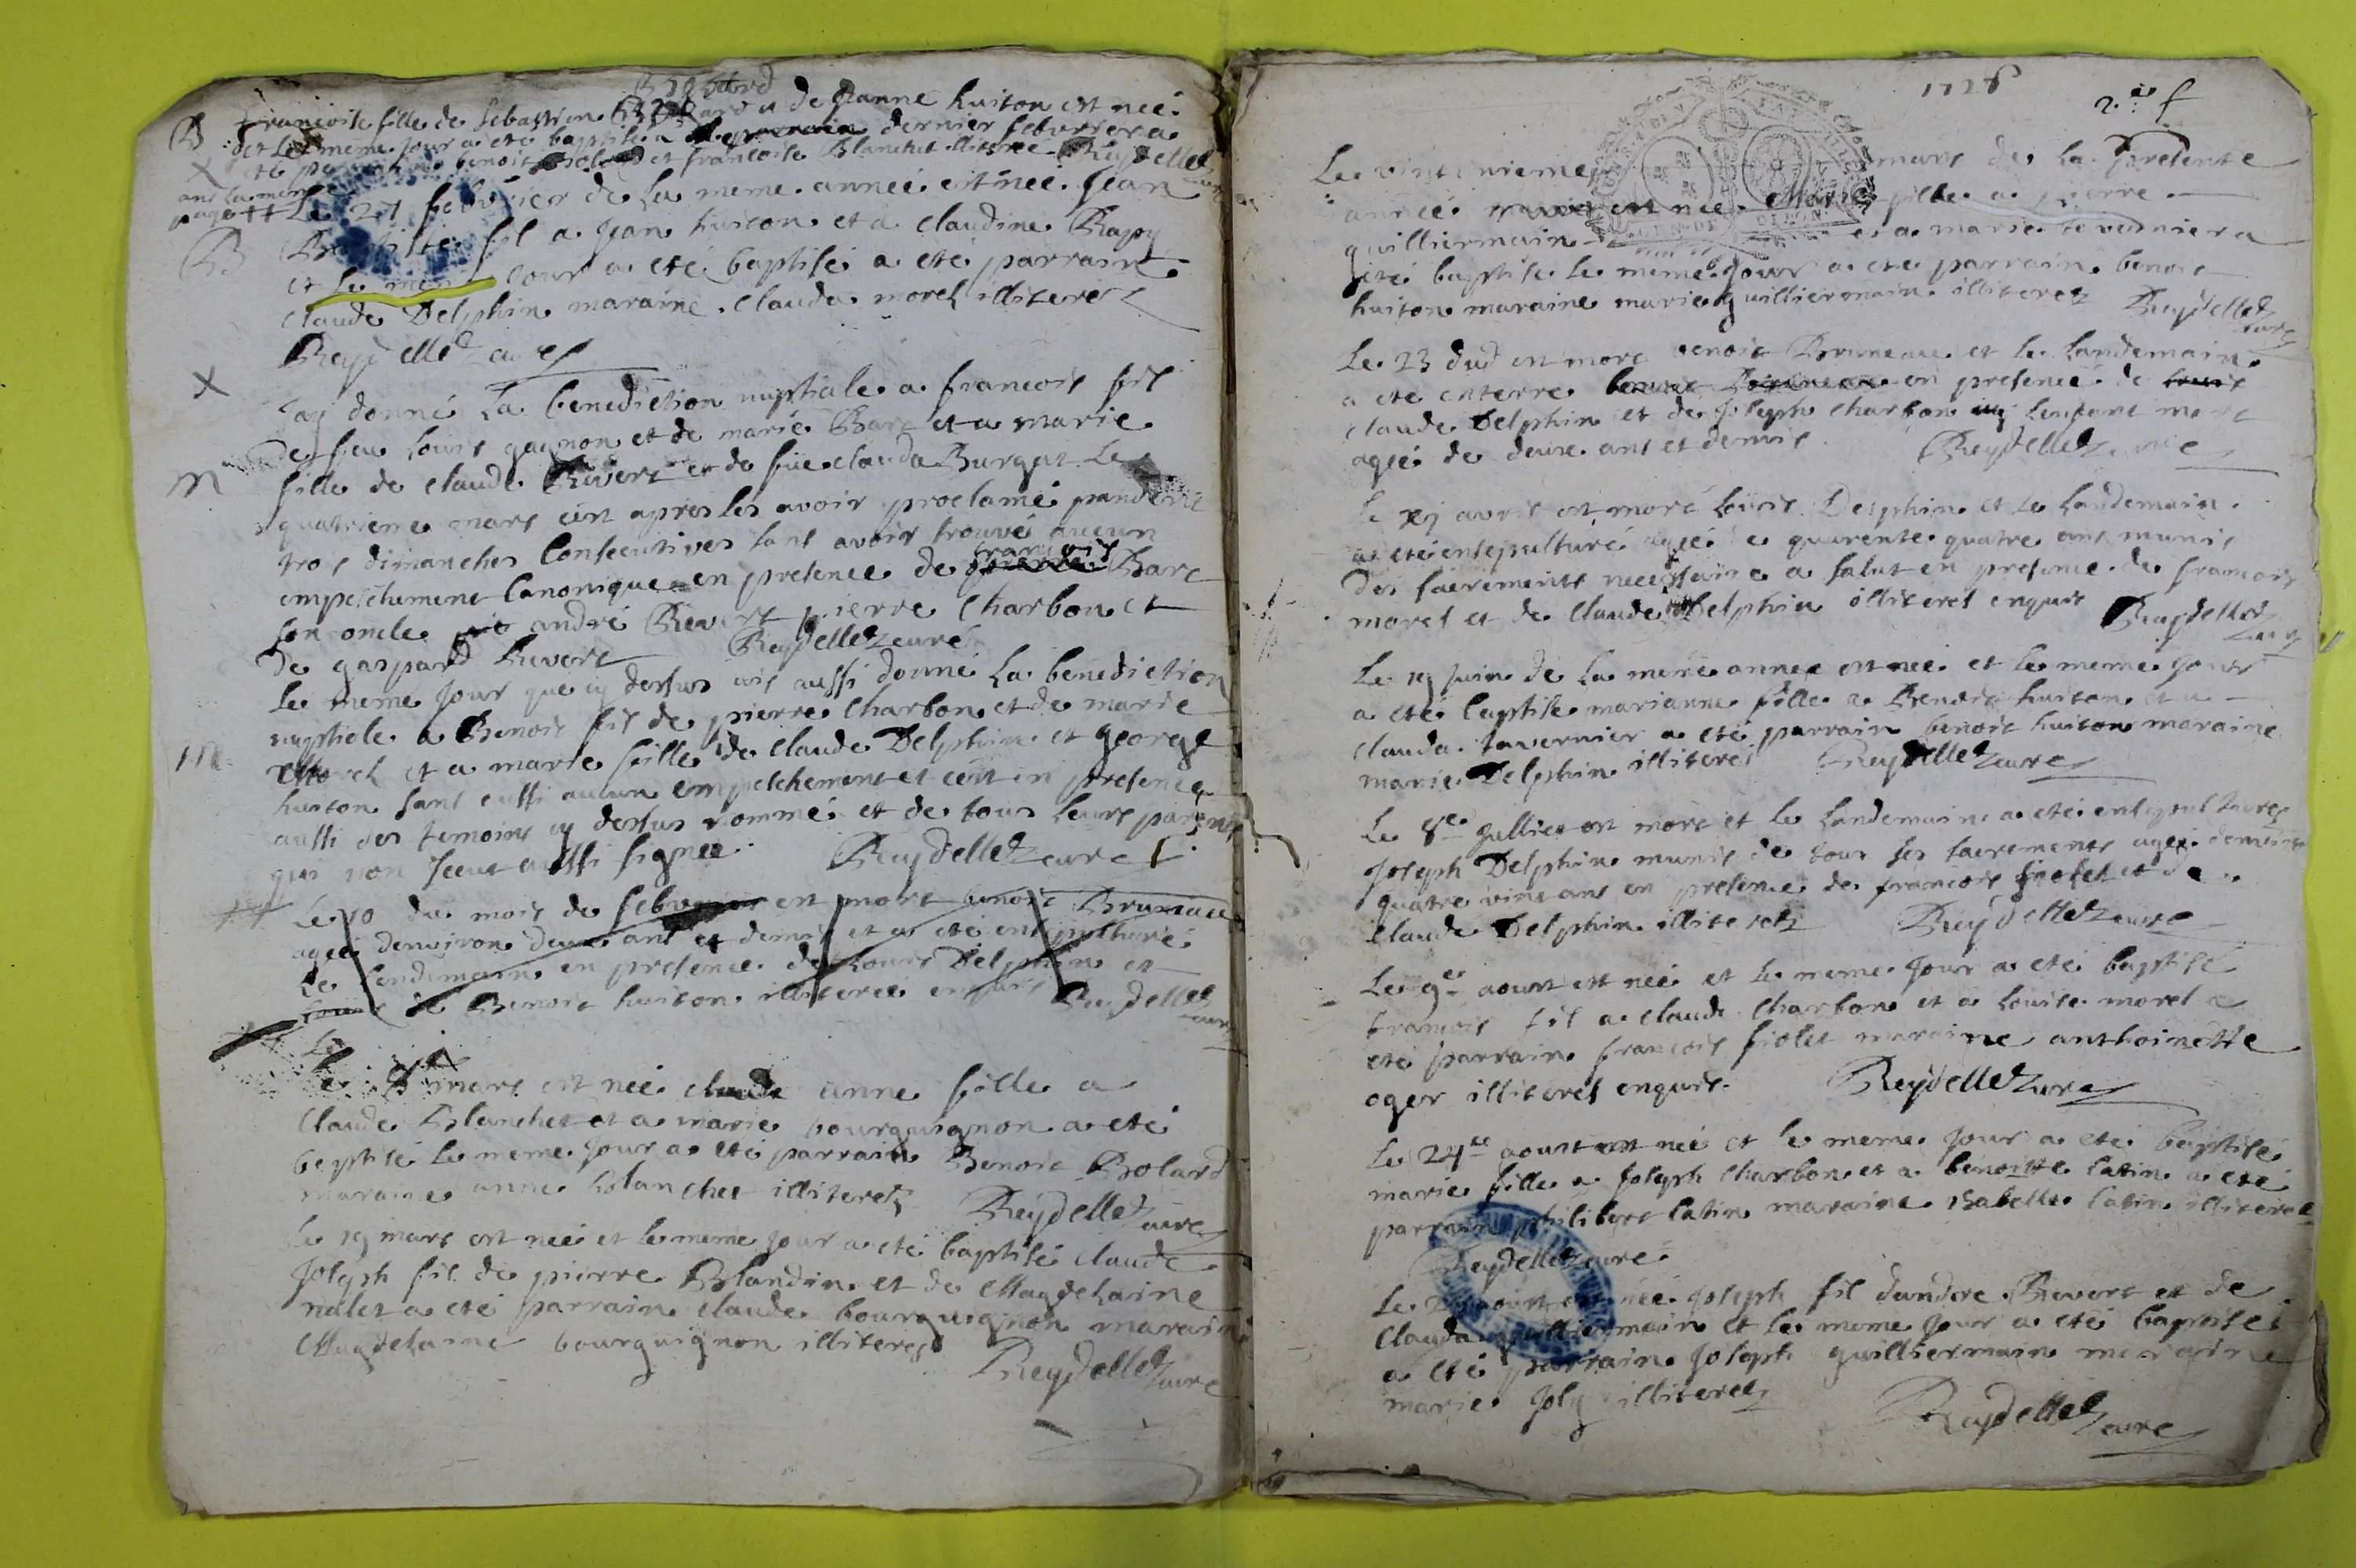 Brochard
B francoise fille de sebastien et de Janne huiton est neé
et le meme jour a eté baptisé a dernier febvrier a
eté benoit et francoise Blanchet illiteré Reydellet
Le 27 febvrier de la meme anneé est neé Jean
B Baptiste fil a Jean huiton et a claudine Rapy
et le meme Jour a eté baptisé a eté parrain
claude Delphin maraine clauda morel illiteres
Reydellet curé
X
Jay donné La benediction nuptiale a francois fil
De feu louis gagnon et de marie Barc et a marie
m fille de claude Revert et de feüe clauda Burgat Le
quatrieme mars cest apres les avoir proclamé pandent
trois dimanches Consecutives sans avoir trouvé aucun
francois
empeschement Canonique en presence de Barc
son oncle andré Revert pierre Charbon et
De gaspard Revert Reydellet curé
Le meme Jour que cy dessus ais aussi donné La benediction
nuptiale a Benoit fil de pierre Charbon et de marie
m Morel et a marie fille de claude Delphin et george
huiton sans aussi aucun empeschement et cest en presence
aussi des temoins cy dessus nommé et de tous leurs parens
qui non sceut aussi signer Reydellet curé
Le 10 du mois de febvrier est mort benoit Bruneau
ageé denviron deux ans et demis et a eté ensepulturé
Le Lendemain en presence de Louis Delphin et
de Benoit huiton illiteree enquis Reydellet curé
Le
Le 8 mars est neé claude anne fille a
Claude Blanchet et a marie bourguignon a eté
baptisé le meme Jour a eté parrain Benoit Bolard
maraine anne blanchet illiteretz Reydellet curé
Le 19 mars est neé et le meme Jour a eté baptisé claude
Joseph fil de pierre Blandin et de Magdelaine
nalet a eté parrain claude bourguignon maraine
Magdelaine bourguignon illiteres
Reydellet curé
1726
2e f
Le vint unieme mars de La presente
anneé est neé Marie fille a pierre
guilliermain et a marie tavernier a
eté baptisé le meme Jour a eté parrain benoit
huiton maraine marie guilliermain illiteretz Reydellet curé
Le 23 dud est mort benoit Bruneau et le landemain
a eté enterre en presence de
claude Delphin et de Joseph Charbon lenfant mort
ageé de deux ans et demis Reydellet curé
le avril est mort Louis Delphin et le landemain
a eté ensepulturé ageé de quarente quatre ans munis
Des sacrements necessaire a salut en presence de francois
morel et de claude Delphin illiteres enquis Reydellet
Le 19 Juin de La meme anneé est neé et le meme Jour
a eté baptisé marianne fille a Benoit huiton et a
clauda tavernier a eté parrain benoit huiton maraine
marie Delphin illiteres Reydellet curé
Le 8e Julliet est mort et le landemain a eté ensepulturé
Joseph Delphin munis de tous ses sacrements ageé denviron
quatre vint ans en presence de francois fiolet et de
claude Delphin illiteretz Reydellet curé
Le 9e aoust est neé et le meme Jour a eté baptisé
francois fil a claude Charbon et a Louise morel a
eté parrain francois fiolet maraine anthoinette
oger illiteres enquis Reydellet curé
Le 24e aoust est neé et le meme Jour a eté baptisé
marie fille a Joseph Charbon et a benoitte latin a eté
parrain philibert latin maraine Isabelle latin illiteres
Reydellet curé
Le aoust est neé Joseph fil dandre Revert et de
Clauda guilliermain et le meme Jour a eté baptisé
a eté parrain Joseph guilliermain maraine
marie Joly illiteretz Reydellet curé